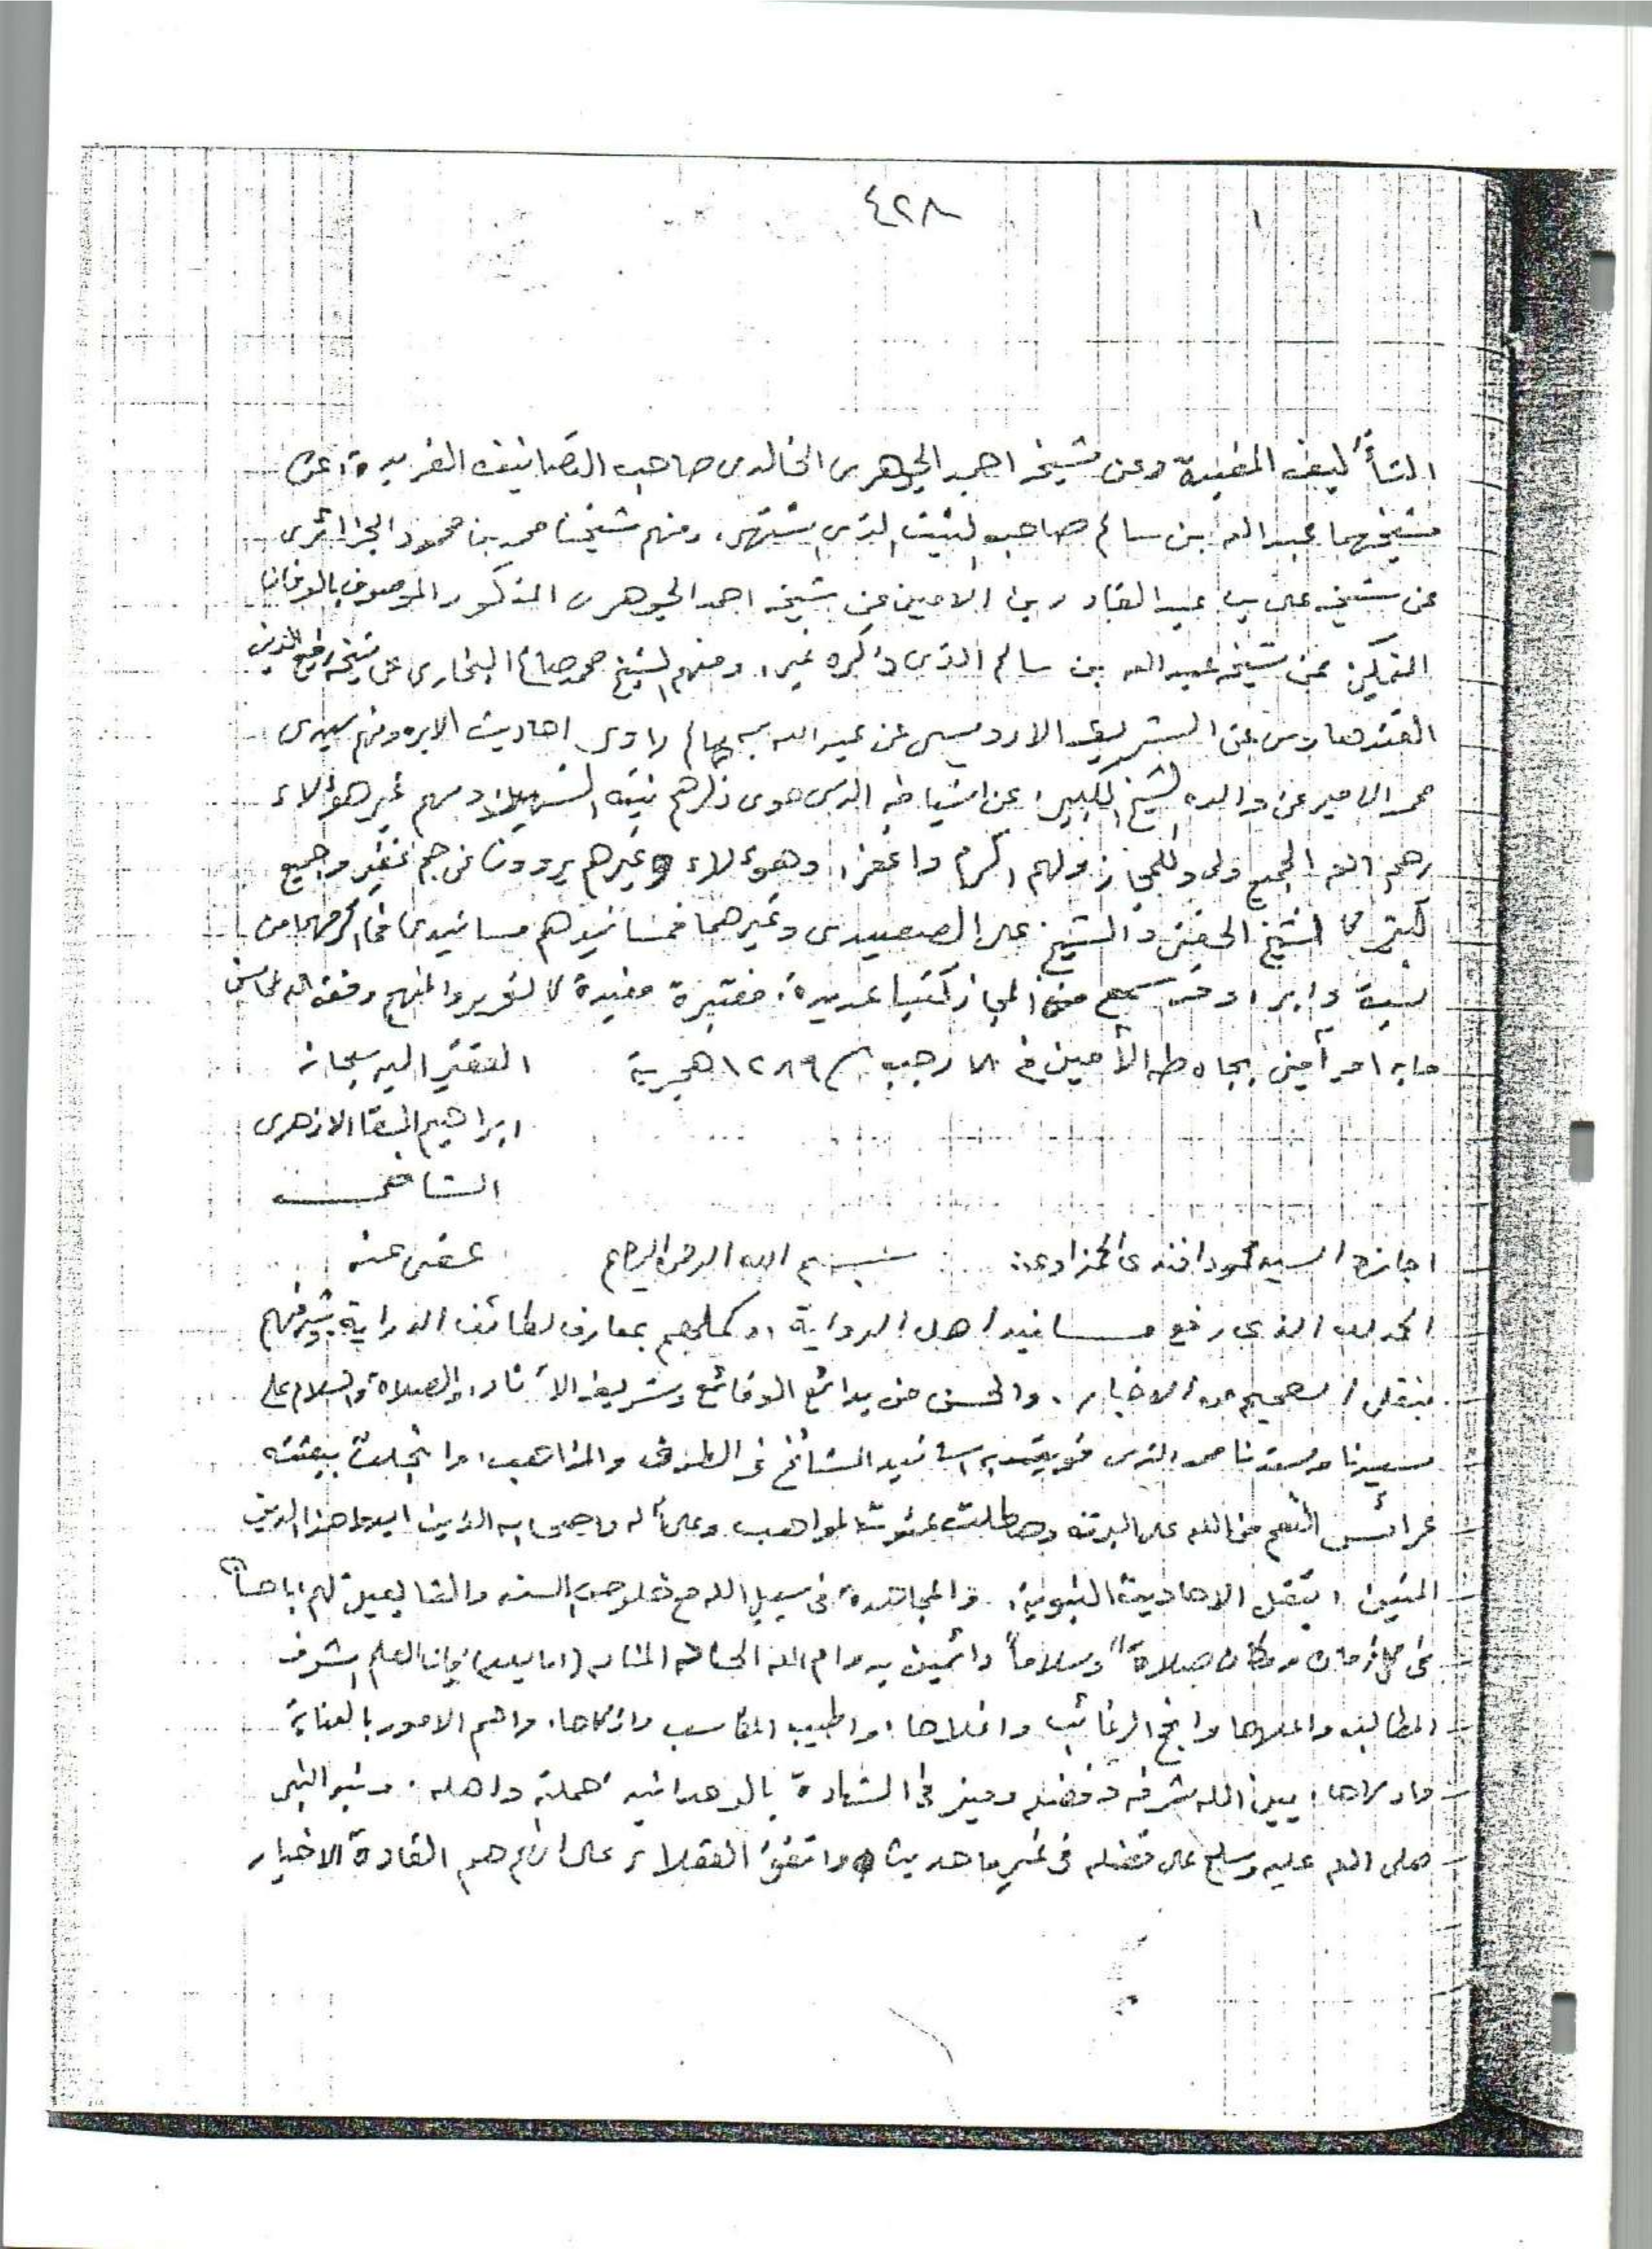 ٤٢٨
التأليف المفيدة وعن شيخه احمد الجوهرى الخالدى صاحب التصانيف الفريدة عن
شيخهما عبد الله بن سالم صاحب الثبت الذى اشتهر، ومنهم شيخنا محمد بن محمود الجزائرى
عن شيخه على بن عبد القادر بن الامين عن شيخه احمد الجوهرى المذكور الموصوف بالعرفان
عن شيخه عبد الله بن سالم الذى ذكره غير، ومنهم الشيخ محمد صالح البخارى عن شيخه رفيع الدين
القندهارى عن الشريف الادريسى عن عبد الله بن سالم راوى احاديث الابره ومنهم سيدى
محمد الامير عن والده الشيخ الكبير، عن اشياخه الذى حوى ذكرهم ثبته الشهير ومنهم غير هؤلاء
رحم الله الجميع ولى وللمجاز ولهم اكرم واغفر، وهؤلاء وغيرهم يروون عن جم غفير وجميع
كثير كالشيخ الحفنى والشيخ على الصعيدى وغيرهما فمسانيدهم مسانيدى من
وقد سمع منى المجاز كتبا عديدة، معتبرة مفيدة كالتحرير والمنهج وفقه الله
مابه امر آمين بجاه طه الأمين فى ٨ رجب ١٢٨٩ هجرية الفقير اليه سبحانه
ابراهيم السقا الازهرى
الشافعى
اجازة السيد محمود افندى الحمزاوى: بسم الله الرحمن الرحيم عفى عنه
الحمد لله الذى رفع مسانيد اهل الرواية، وكملهم بمعارف لطائف الدراية، وشرفهم
بنقل الصحيح من الاخبار، والحسن من بدائع الوقائع وشريف الآثار، والصلاة والسلام على
سيدنا وسندنا محمد الذى قويت به اسانيد المشائخ فى الطرق والمذاهب، وانجلت ببعثته
عرائس النعم من الله على البرية وهطلت غيوث المواهب وعلى آله واصحابه الذين ايدوا هذا الدين
المتين، بنقل الاحاديث النبوية، والمجاهدة فى سبيل الله مع خلوص السنه والتابعين لهم باحسان
فى كل زمان ومكان صلاة وسلاماً دائمين بدوام الله الحنان المنان (اما بعد) فان العلم اشرف
المطالب واعلاها وانجح الرغائب واغلاها، واطيب المكاسب وازكاها، واهم الامور بالعناية
واولاها، بين الله شرفه وفضله وميز فى الشهادة بالوحدانيه حملته واهله. ونبه النبى
صلى الله عليه وسلم على فضله فى غير ما حديث، واتفق العقلاء على انهم هم القادة الاخيار